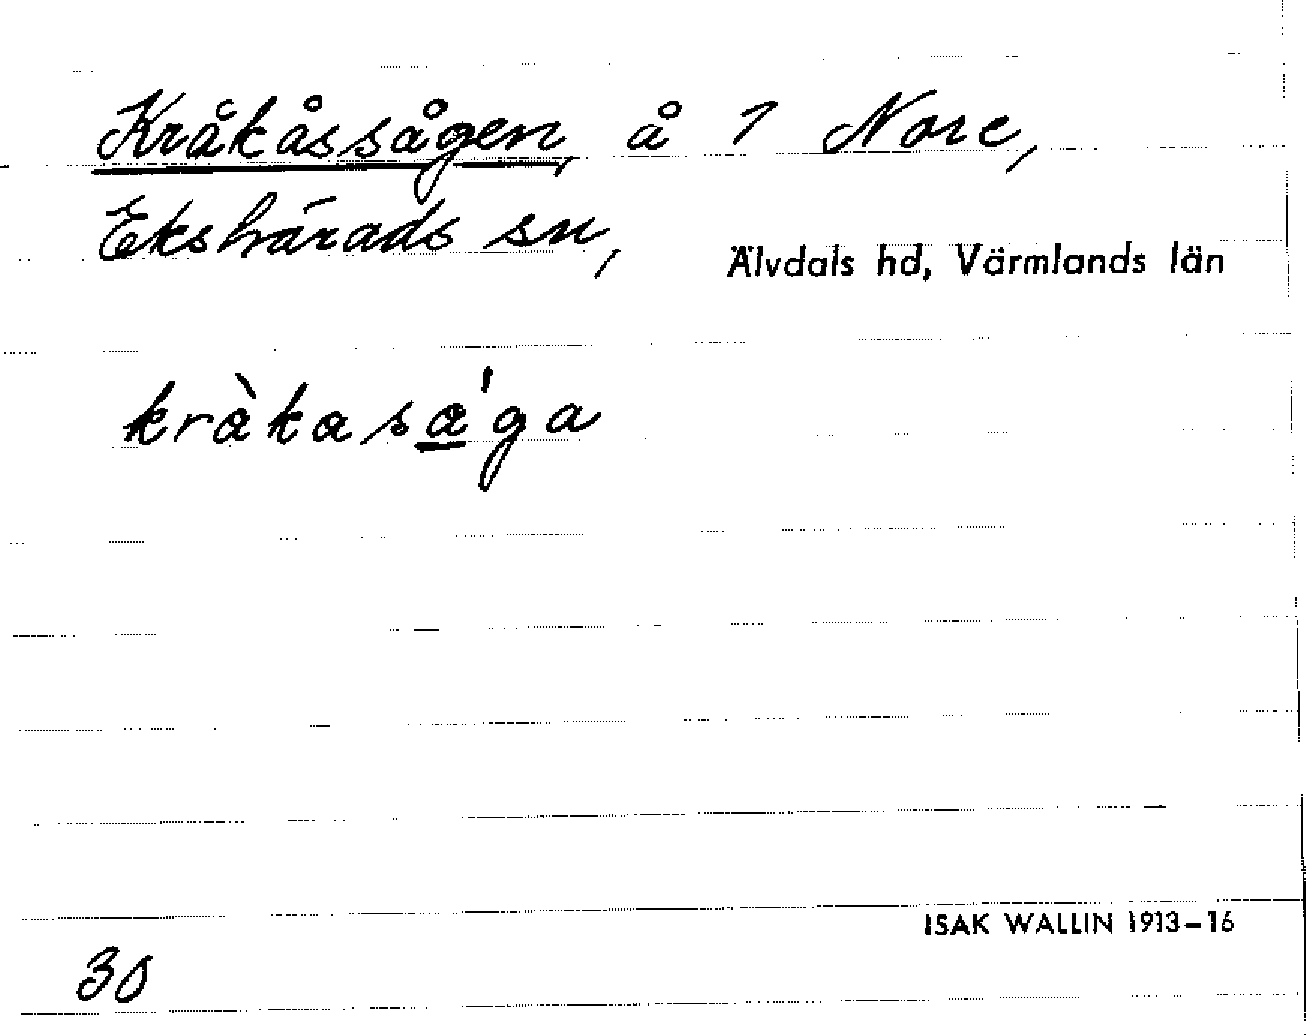 Kråkåssågen, å 1 Nore,
Ekshärads sn, Älvdals hd, Värmlands län
kràkasa̲'ga
ISAK WALLIN 1913–16
30